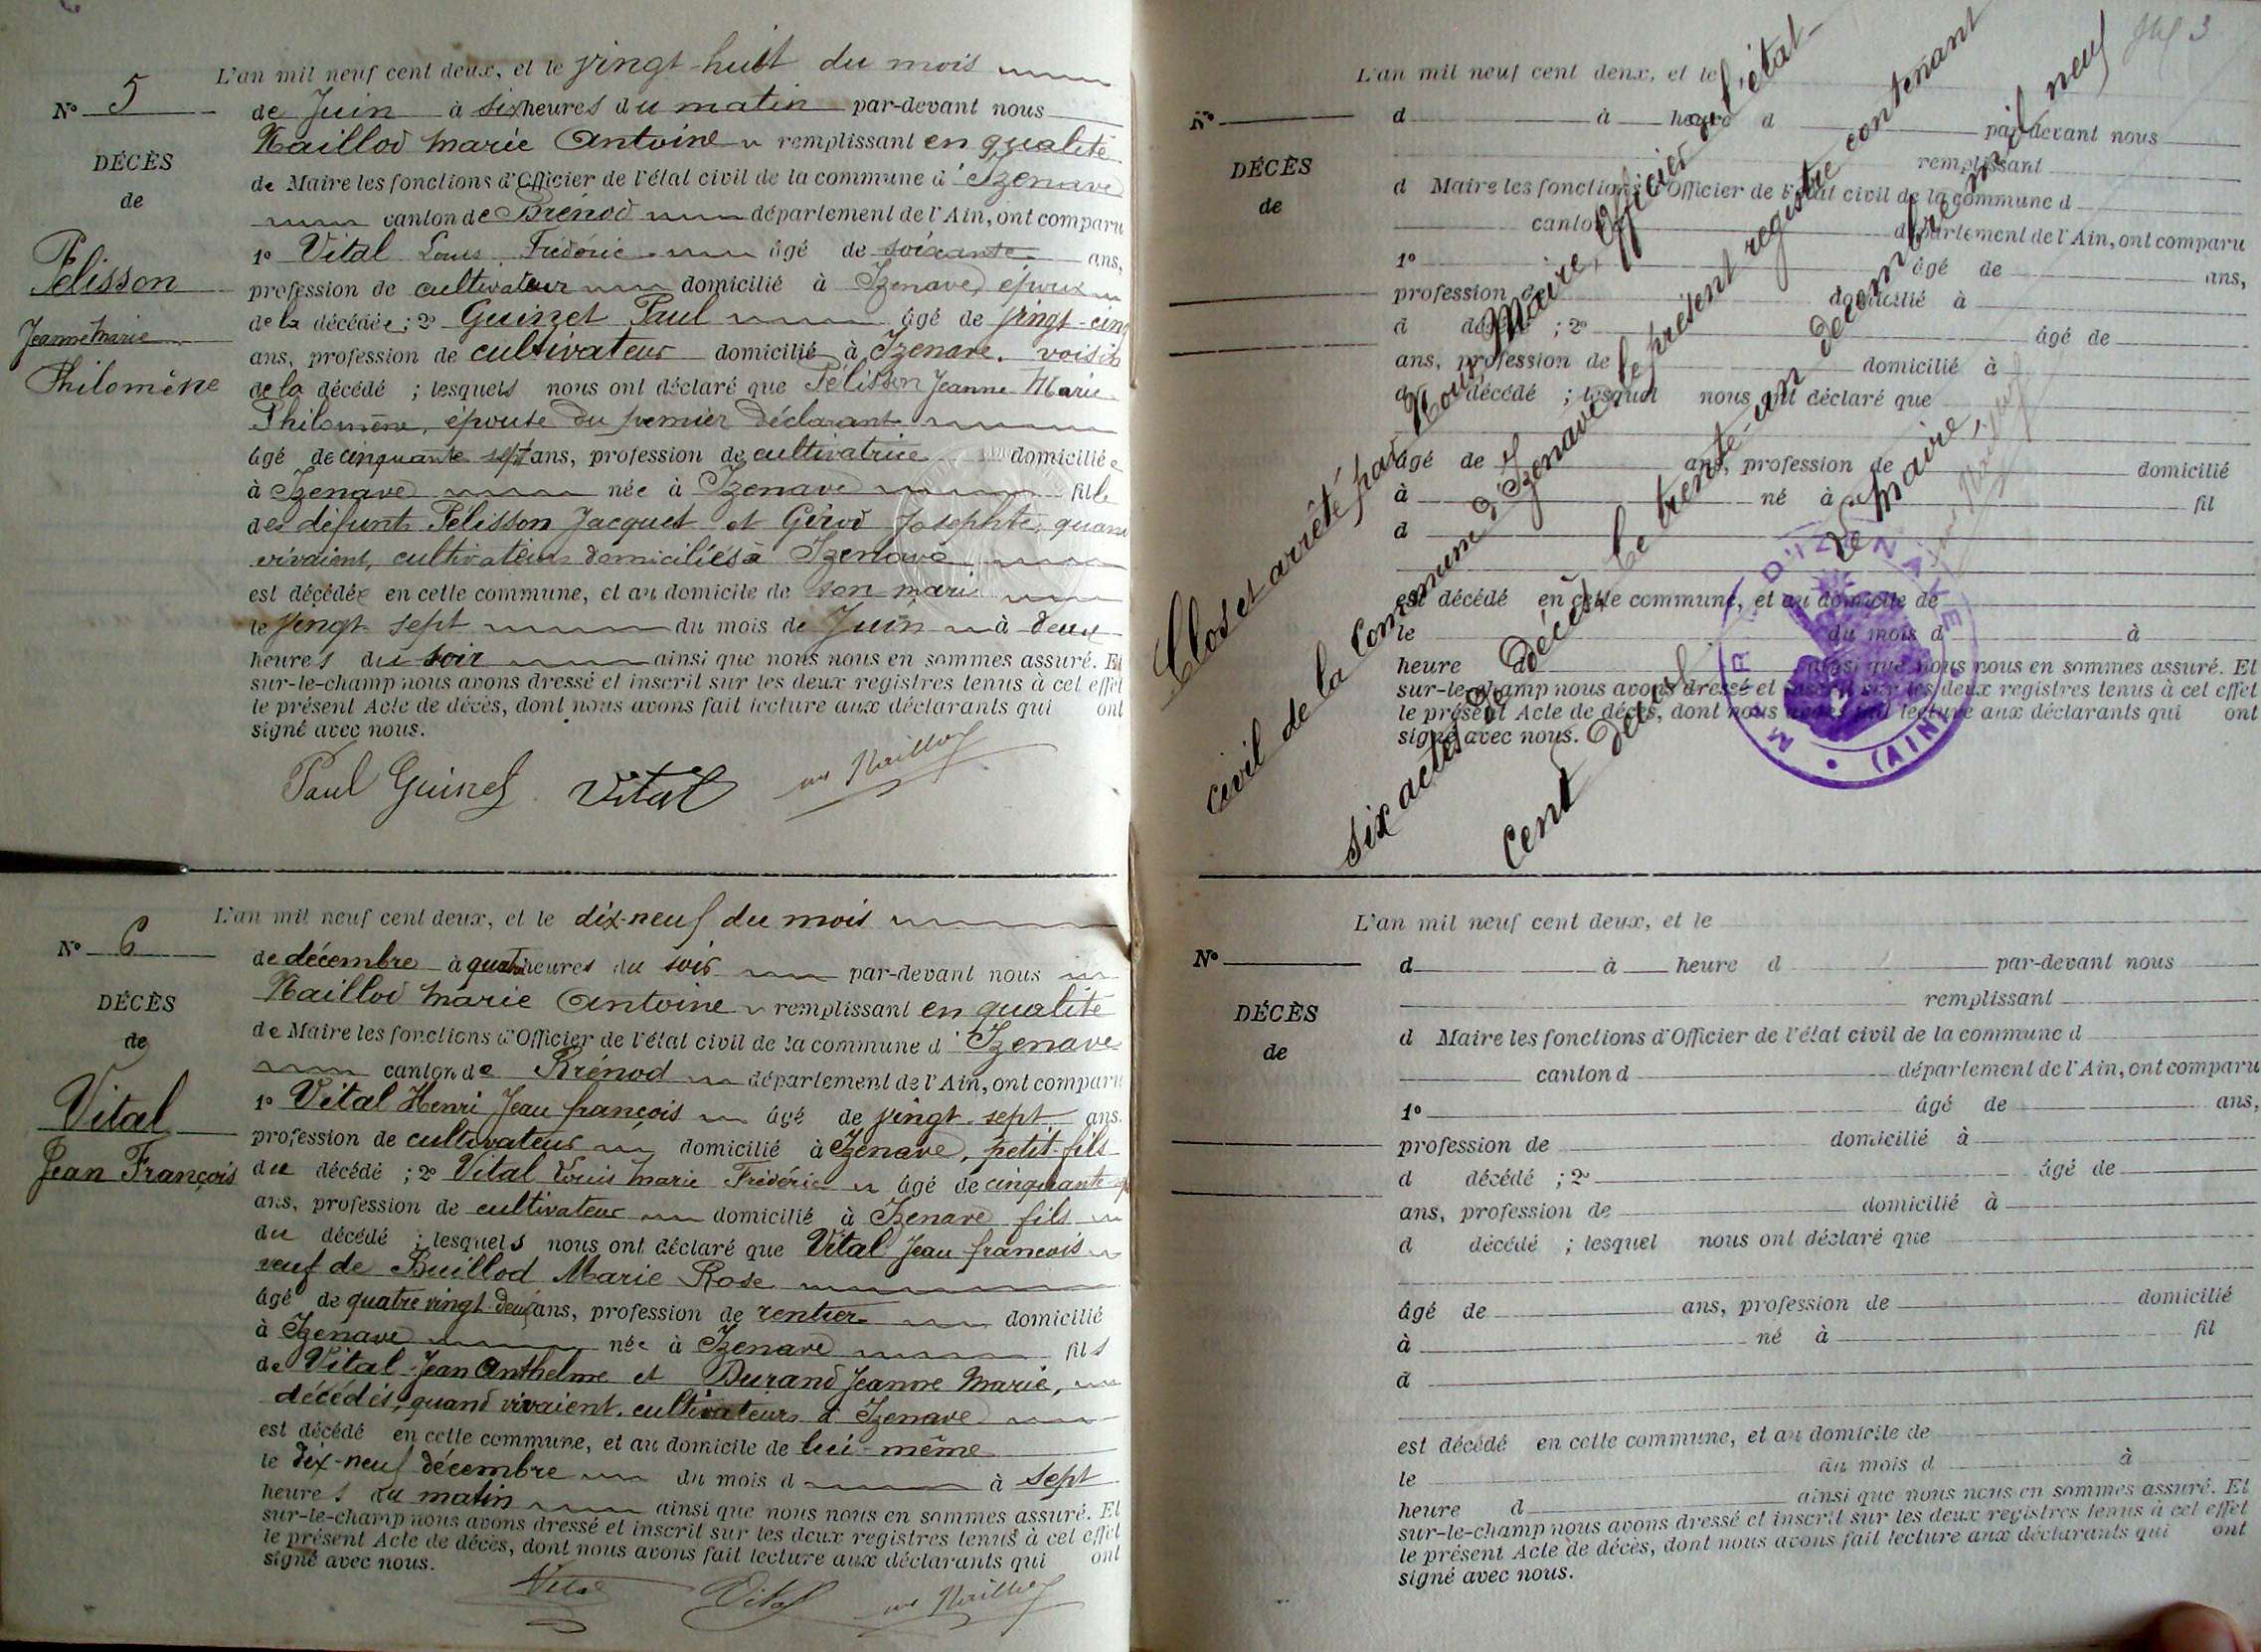 L'an mil neuf cent deux, et le vingt-huit du mois
N° 5
de Juin à six heures du matin par-devant nous
Maillod Marie Antoine remplissant en qualité
DÉCÈS
de
de Maire les fonctions d'Officier de l'état civil de la commune d'Izenave
canton de Brénod département de l'Ain, ont comparu
1° Vital Louis Frédéric âgé de soixante ans,
Pelisson
Jeanne Marie
Philomène
profession de cultivateur domicilié à Izenave, époux
de la décédée ; 2° Guinet Paul âgé de vingt-cinq
ans, profession de cultivateur domicilié à Izenave, voisin
de la décédé ; lesquels nous ont déclaré que Pélisson Jeanne Marie
Philomène, épouse du premier déclarant
âgé de cinquante sept ans, profession de cultivatrice domiciliée
à Izenave née à Izenave fille
des défunts Pelisson Jacques et Girod Josephte, quand
vivaient, cultivateurs domiciliés à Izenave
est décédée en cette commune, et au domicile de son mari
le vingt sept du mois de Juin à deux
heures du soir ainsi que nous nous en sommes assuré. Et
sur-le-champ nous avons dressé et inscrit sur les deux registres tenus à cet effet
le présent Acte de décès, dont nous avons fait lecture aux déclarants qui ont
signé avec nous.
Paul Guinet Vital Maillod
L'an mil neuf cent deux, et le dix-neuf du mois
N° 6
de décembre à quatre heures du soir par-devant nous
Maillod Marie Antoine remplissant en qualité
DÉCÈS
de
de Maire les fonctions d'Officier de l'état civil de la commune d'Izenave
canton de Brénod département de l'Ain, ont comparu
Vital
Jean François
1° Vital Henri Jean françois âgé de vingt-sept ans.
profession de cultivateur domicilié à Izenave, petit-fils
du décédé ; 2° Vital Louis Marie Frédéric âgé de cinquante
ans, profession de cultivateur domicilié à Izenave fils
du décédé ; lesquels nous ont déclaré que Vital Jean françois
veuf de Buillod Marie Rose
âgé de quatre vingt deux ans, profession de rentier domicilié
à Izenave née à Izenave fils
de Vital Jean Anthelme et Durand Jeanne Marie,
décédés, quand vivaient, cultivateurs à Izenave
est décédé en cette commune, et au domicile de lui-même
le dix-neuf décembre du mois d à sept
heures du matin ainsi que nous nous en sommes assuré. Et
sur-le-champ nous avons dressé et inscrit sur les deux registres tenus à cet effet
le présent Acte de décès, dont nous avons fait lecture aux déclarants qui ont
signé avec nous.
Vital Vital Maillod
3
L'an mil neuf cent deux, et le
N°
d à heure d par-devant nous
remplissant
DÉCÈS
de
d Maire les fonctions d'Officier de l'état civil de la commune d
canton d département de l'Ain, ont comparu
1° âgé de ans,
profession de domicilié à
d décédé ; 2° âgé de
ans, profession de domicilié à
d décédé ; lesquel nous ont déclaré que
âgé de ans, profession de domicilié
à né à fil
d
est décédé en cette commune, et au domicile de
le du mois d à
heure d ainsi que nous nous en sommes assuré. Et
sur-le-champ nous avons dressé et inscrit sur les deux registres tenus à cet effet
le présent Acte de décès, dont nous avons fait lecture aux déclarants qui ont
signé avec nous.
Clos et arrêté par Nous, Maire, Officier de l'état
civil de la Commune d'Izenave le présent registre contenant
six actes de décès le trente-un décembre mil neuf
cent deux
Le Maire,
MAIRIE D'IZENAVE
(AIN)
L'an mil neuf cent deux, et le
N°
d à heure d par-devant nous
remplissant
DÉCÈS
de
d Maire les fonctions d'Officier de l'état civil de la commune d
canton d département de l'Ain, ont comparu
1° âgé de ans,
profession de domicilié à
d décédé ; 2° âgé de
ans, profession de domicilié à
d décédé ; lesquel nous ont déclaré que
âgé de ans, profession de domicilié
à né à fil
d
est décédé en cette commune, et au domicile de
le du mois d à
heure d ainsi que nous nous en sommes assuré. Et
sur-le-champ nous avons dressé et inscrit sur les deux registres tenus à cet effet
le présent Acte de décès, dont nous avons fait lecture aux déclarants qui ont
signé avec nous.